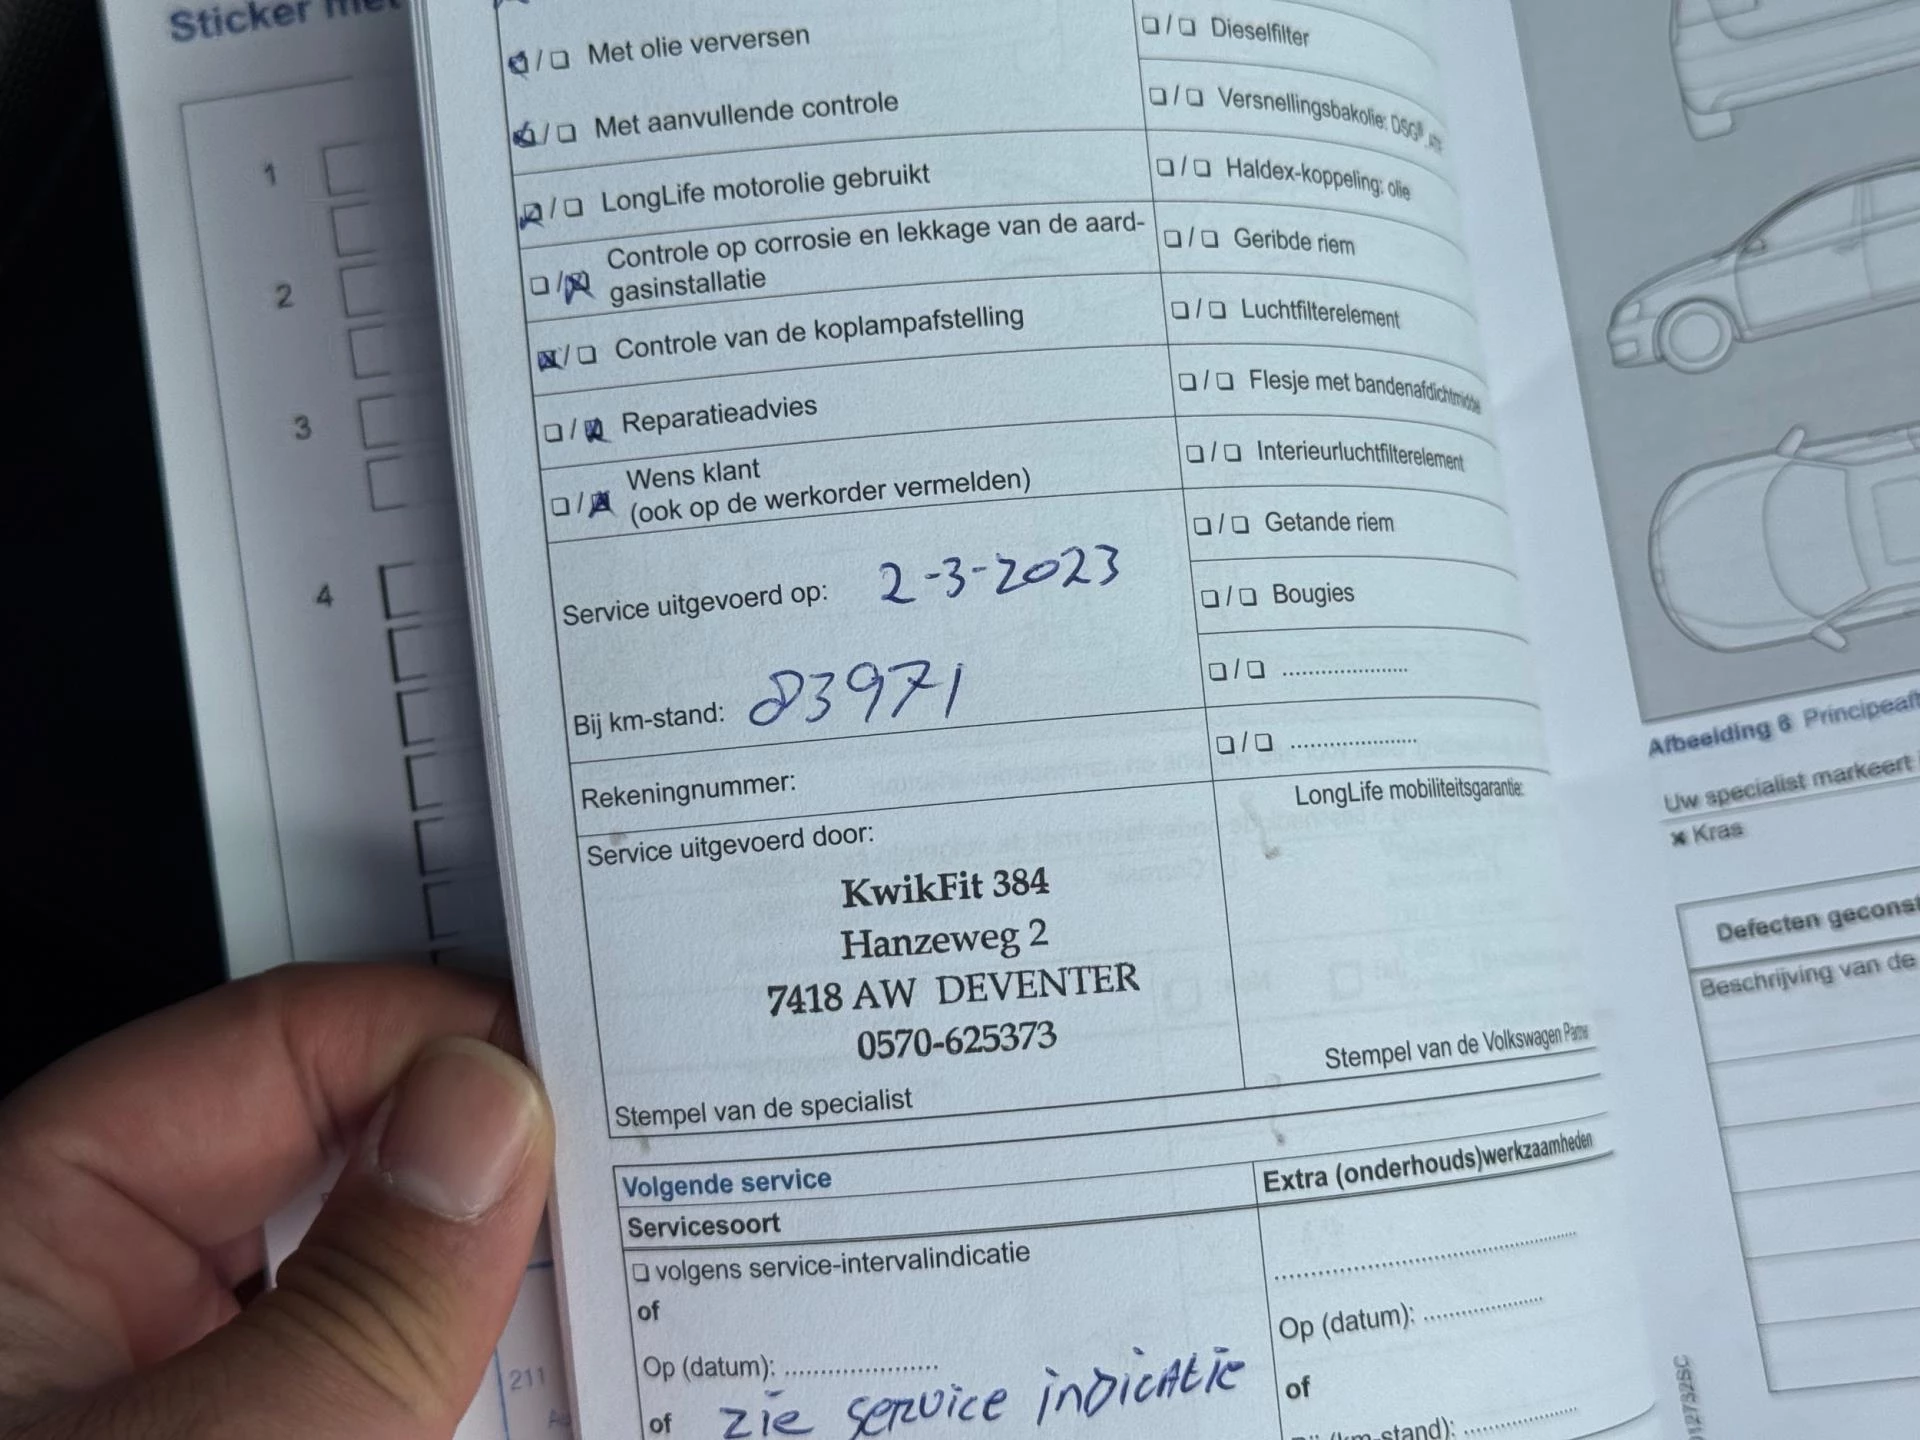 Sticker
1
2
3
4
211
☑/☐ Met olie verversen
☑/☐ Met aanvullende controle
☑/☐ LongLife motorolie gebruikt
☐/☒ Controle op corrosie en lekkage van de aard-
gasinstallatie
☒/☐ Controle van de koplampafstelling
☐/☒ Reparatieadvies
☐/☒ Wens klant
(ook op de werkorder vermelden)
Service uitgevoerd op: 2-3-2023
Bij km-stand: 83971
Rekeningnummer:
Service uitgevoerd door:
KwikFit 384
Hanzeweg 2
7418 AW DEVENTER
0570-625373
Stempel van de specialist
☐/☐ Dieselfilter
☐/☐ Versnellingsbakolie: DSG®
☐/☐ Haldex-koppeling: olie
☐/☐ Geribde riem
☐/☐ Luchtfilterelement
☐/☐ Flesje met bandenafdichtmiddel
☐/☐ Interieurluchtfilterelement
☐/☐ Getande riem
☐/☐ Bougies
☐/☐ ....................
☐/☐ ....................
LongLife mobiliteitsgarantie:
Stempel van de Volkswagen Partner
Volgende service
Servicesoort
☐ volgens service-intervalindicatie
of
Op (datum): ......................
of zie service indicatie
Extra (onderhouds)werkzaamheden
............................................
Op (datum): ..................
of
(km-stand): ................
Afbeelding 6
Uw specialist markeert
x Kras
Defecten
Beschrijving van de